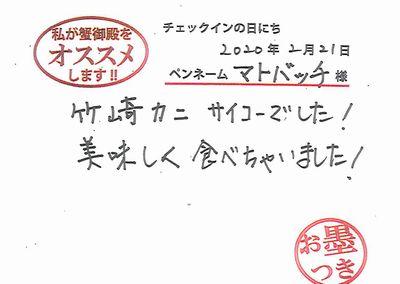 私が蟹御殿を
オススメ
します!!
チェックインの日にち
2020年2月21日
ペンネーム マトバッチ 様
竹崎カニ サイコーでした!
美味しく食べちゃいました!
お墨
つき